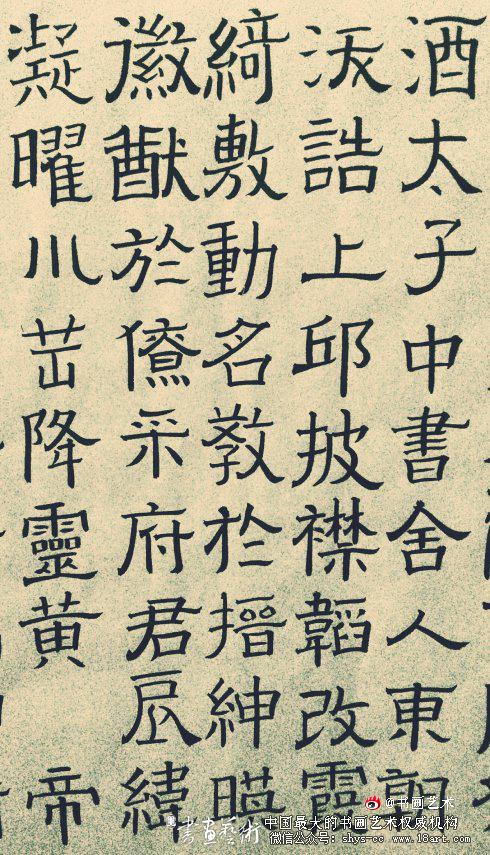 酒太子中書舍人東
誥上邱披襟韜改霞
綺敷動名教於搢紳暎
徽猷於僚采府君辰緯
凝曜川降靈黄帝
@书画艺术
書畫藝術
中国最大的书画艺术权威机构
微信公众号：shys-cc www.18art.com